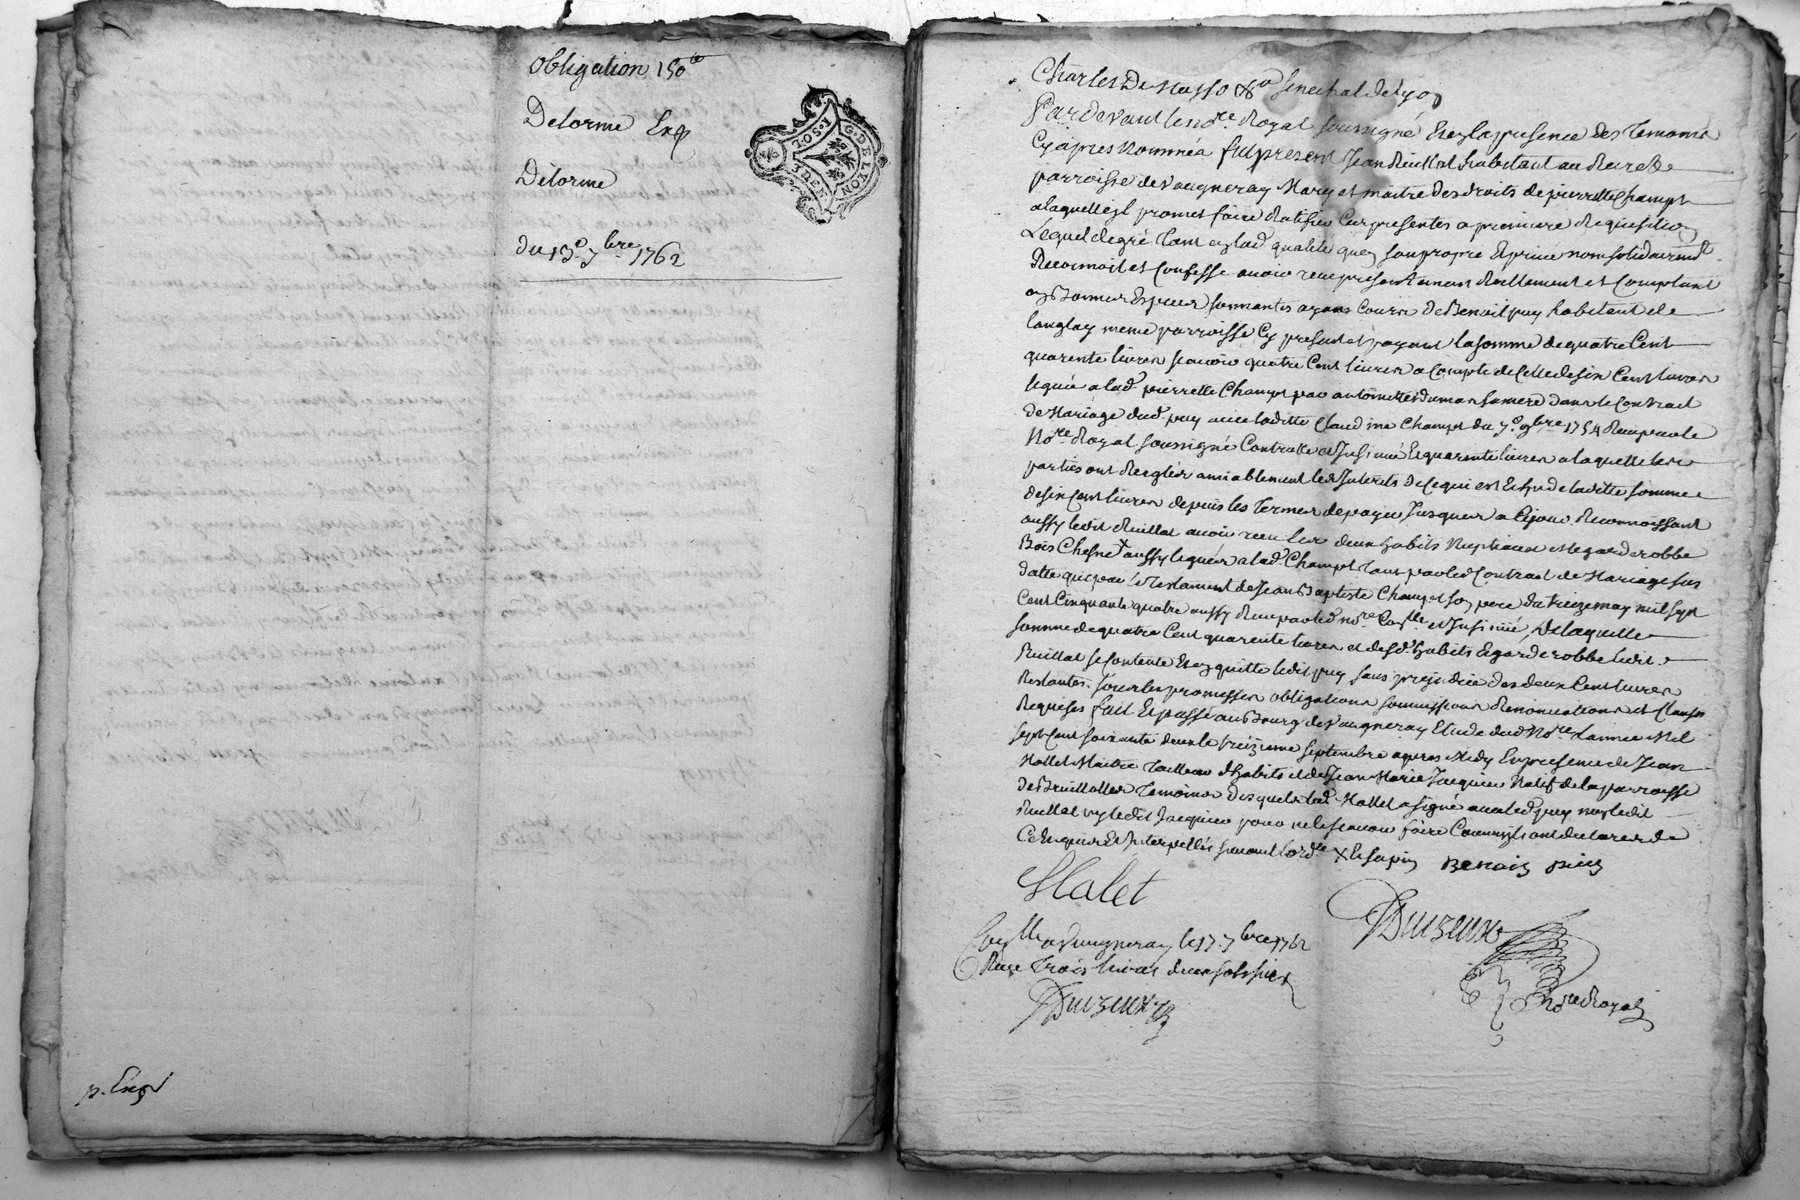 Obligation 150ᵗᵗ
Delorme Exp
Delorme
du 13ᵉ 7bre 1762
G. DE LYON
DEUX SOLS
p. Expᵉ
Charles De Masso &ᵃ Senechal de Lyon
Pardevant le noʳᵉ Royal soussigné Et en la presence des Temoins
Cy apres nommés fut present Jean Ruillat habitant au
parroisse de Vaugneray Mary et maitre des droits de pierrette Champt
a laquelle il promet faire Ratifier Ces presentes a premiere Requisition
Lequel de gré Tant en lad. qualité que en son propre Et privé nom solidairemᵗ
Reconnoit et Confesse avoir receu presentement Reellement et Comptant
en Bonnes Especes sonnantes ayans Cours de Benoit puy habitant de
meme parroisse Cy present et payant la somme de quatre Cent
quarente livres scavoir quatre Cent livres a Compte de Celle de six Cent livres
leguée a lad. pierrette Champt par antoinette sa mere dans le Contrat
de Mariage dud. puy avec laditte Claudine Champt du 7ᵉ 9bre 1754 Receu par le
Noʳᵉ Royal soussigné Controllé et Insinué Et quarente livres a laquelle les
parties ont Reglés amiablement les Interets de Ce qui est Echu de laditte somme
de six Cent livres depuis les Termes de payer Jusques a Ce jour Reconnoissant
aussy ledit Ruillat avoir receu les deux habits Nuptiaux et le garderobbe
Bois Chesne + aussy legués a lad. Champt Tant par led. Contrat de Mariage sus
datte que par le Testament de Jean Baptiste Champt son pere du treize may mil sept
Cent Cinquante quatre aussy Receu par led. noʳᵉ Conᵗˡˡᵉ et Insinué, De laquelle
somme de quatre Cent quarente livres et desd. habits Et garderobbe ledit
Ruillat se Contente Et en quitte ledit puy sans prejudice des deux Cent livres
Restantes. sous les promesses obligations soumissions Renonciations et Clauses
Requises fait Et passé au Bourg de Vaugneray Etude dud. Noʳᵉ L'annee Mil
sept Cent soixante deux le treizieme septembre apres Midy En presence de Jean
Mallet Maitre Tailleur d'habits et de Jean Marie Jacquier Natif de la parroisse
de Brullioles Temoins Desquels led. Mallet a signé avec led. puy non ledit
Ruillat ny ledit Jacquier pour ne le scavoir faire Comme ils ont declarés de
Ce Enquis Et Interpellés suivant l'ordᶜᵉ X le sapin Benoit puy
Malet
Conᵗˡˡᵉ a Vaugneray le 17. 7bre 1762
Receu Trois livres deux sols six d.
Noʳᵉ Royal